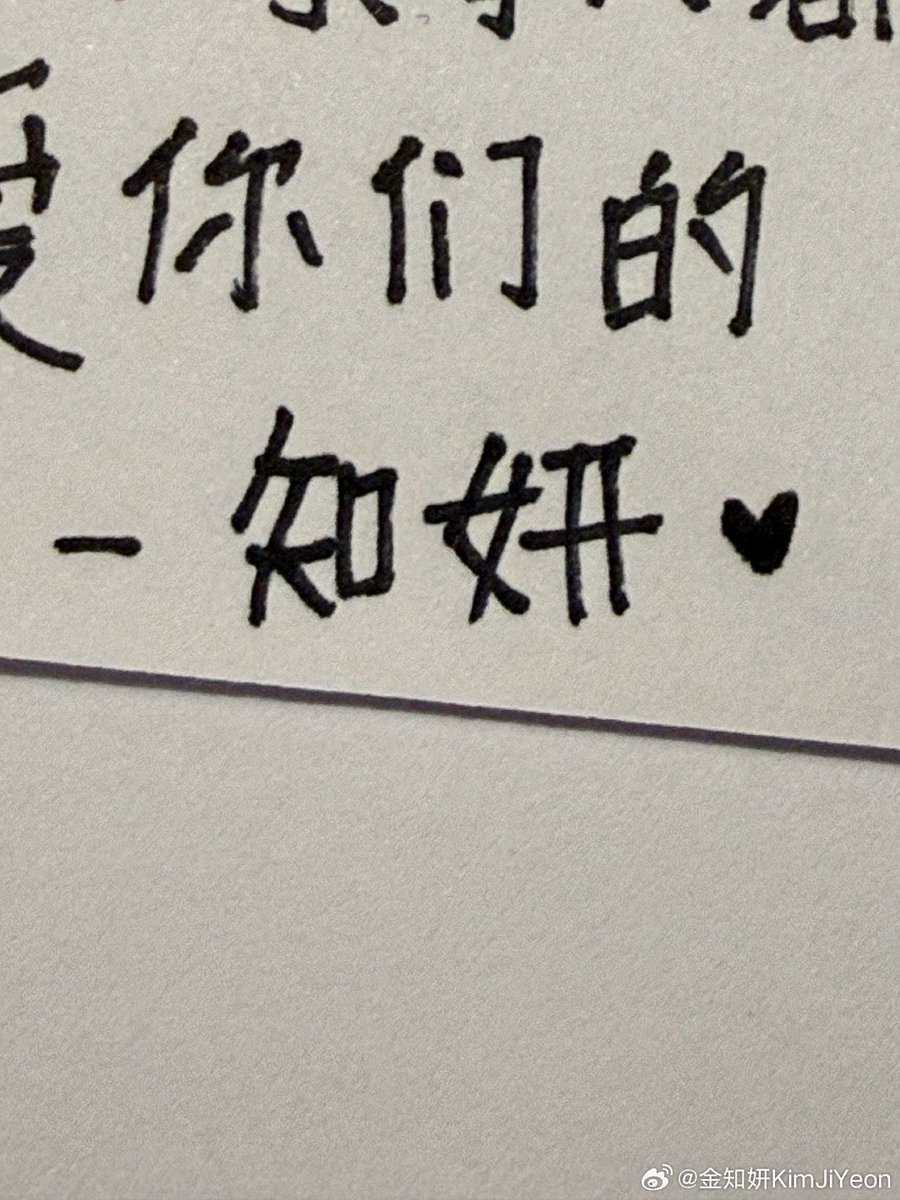 爱你们的
- 知妍♥
@金知妍KimJiYeon